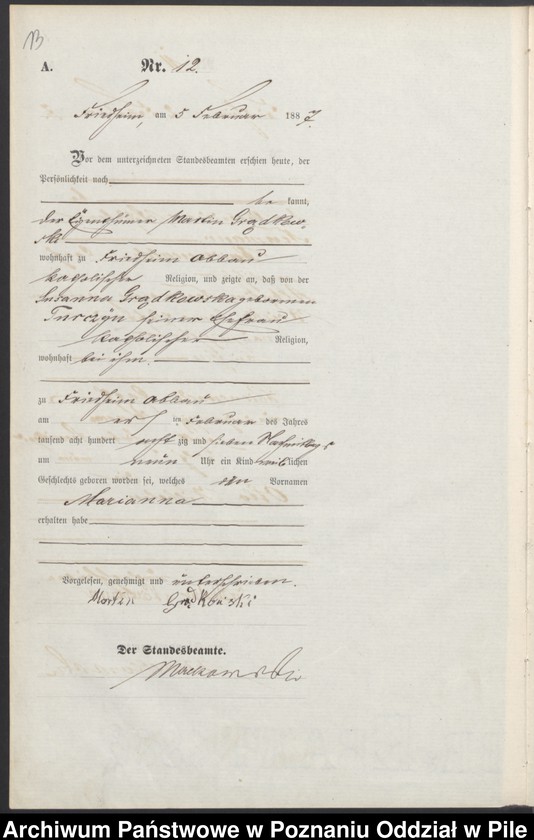 13
A. Nr. 12.
Friedheim, am 5 Februar 1887.
Vor dem unterzeichneten Standesbeamten erschien heute, der
Persönlichkeit nach
be kannt,
der Eigenthümer Martin Grądkow-
ski
wohnhaft zu Friedheim Abbau
katholischer Religion, und zeigte an, daß von der
Susanna Grądkowska geborenen
Turczyn seiner Ehefrau
katholischer Religion,
wohnhaft bei ihm.
zu Friedheim Abbau
am ten Februar des Jahres
tausend acht hundert acht zig und sieben Nachmittags
um neun Uhr ein Kind weiblichen
Geschlechts geboren worden sei, welches den Vornamen
Marianna
erhalten habe
Vorgelesen, genehmigt und unterschrieben.
Martin Grądkowski
Der Standesbeamte.
Archiwum Państwowe w Poznaniu Oddział w Pile